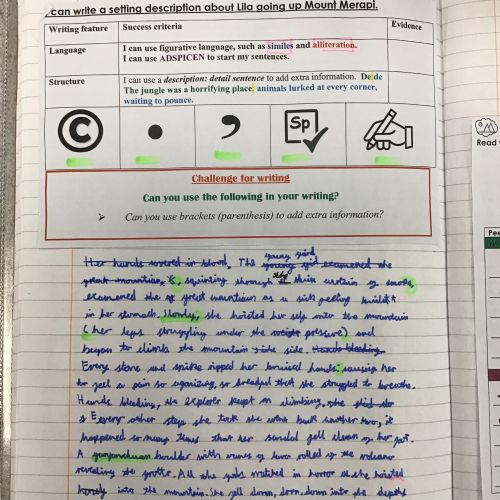 can write a setting description about Lila going up Mount Merapi.
Writing feature Success criteria Evidence
Language I can use figurative language, such as similes and alliteration.
I can use ADSPICEN to start my sentences.
Structure I can use a description: detail sentence to add extra information. De:de
The jungle was a horrifying place: animals lurked at every corner,
waiting to pounce.
© • , Sp
Read
Challenge for writing
Can you use the following in your writing?
➤ Can you use brackets (parenthesis) to add extra information?
Pee
Her hands covered in blood, The young girl examined the
great mountain, squinting through thin curtain of smoke,
examined the great mountain as a sick feeling
in her stomach. Slowly, she hoisted her self into the mountain
(her legs struggling under the pressure) and
began to climb the mountain side side. Hands bleeding
Every stone and spike ripped her bruised hands: causing her
to feel a pain so agonizing, so dreadful that she struggled to breathe.
Hands bleeding, the explorer kept on climbing. she
Every other step she took she went back another two, it
happened so many times that her sandal fell clean of her foot.
A boulder with of lava rolled of the volcano
revealing the grotto. All the gods watched in horror as she hoisted
into the mountain. She fell down, down, down into the depths